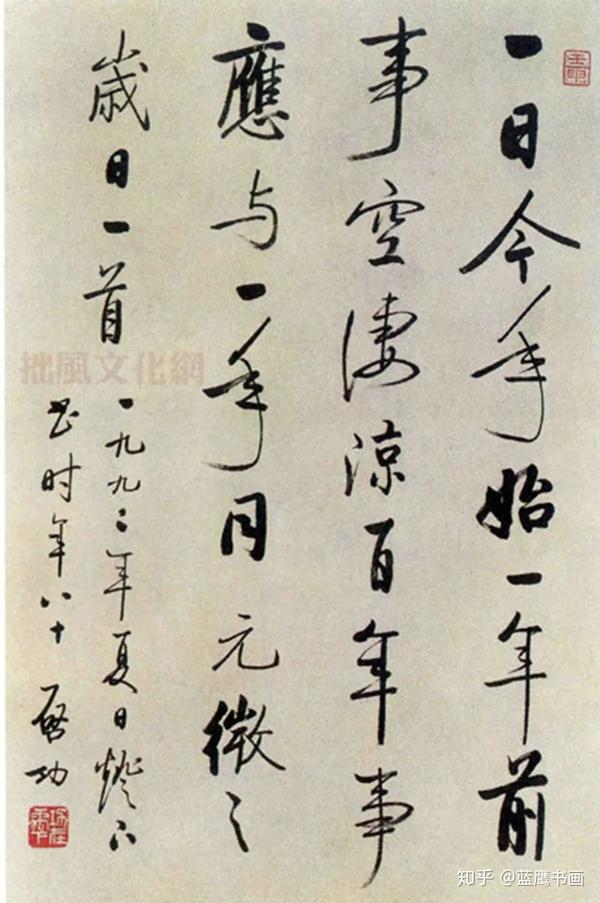 一日今年始一年前
事空淒涼百年事
應与一年同元微之
歲日一首
一九九二年夏日燈下
书时年八十 啓功
拙風文化網
知乎 @蓝鹰书画